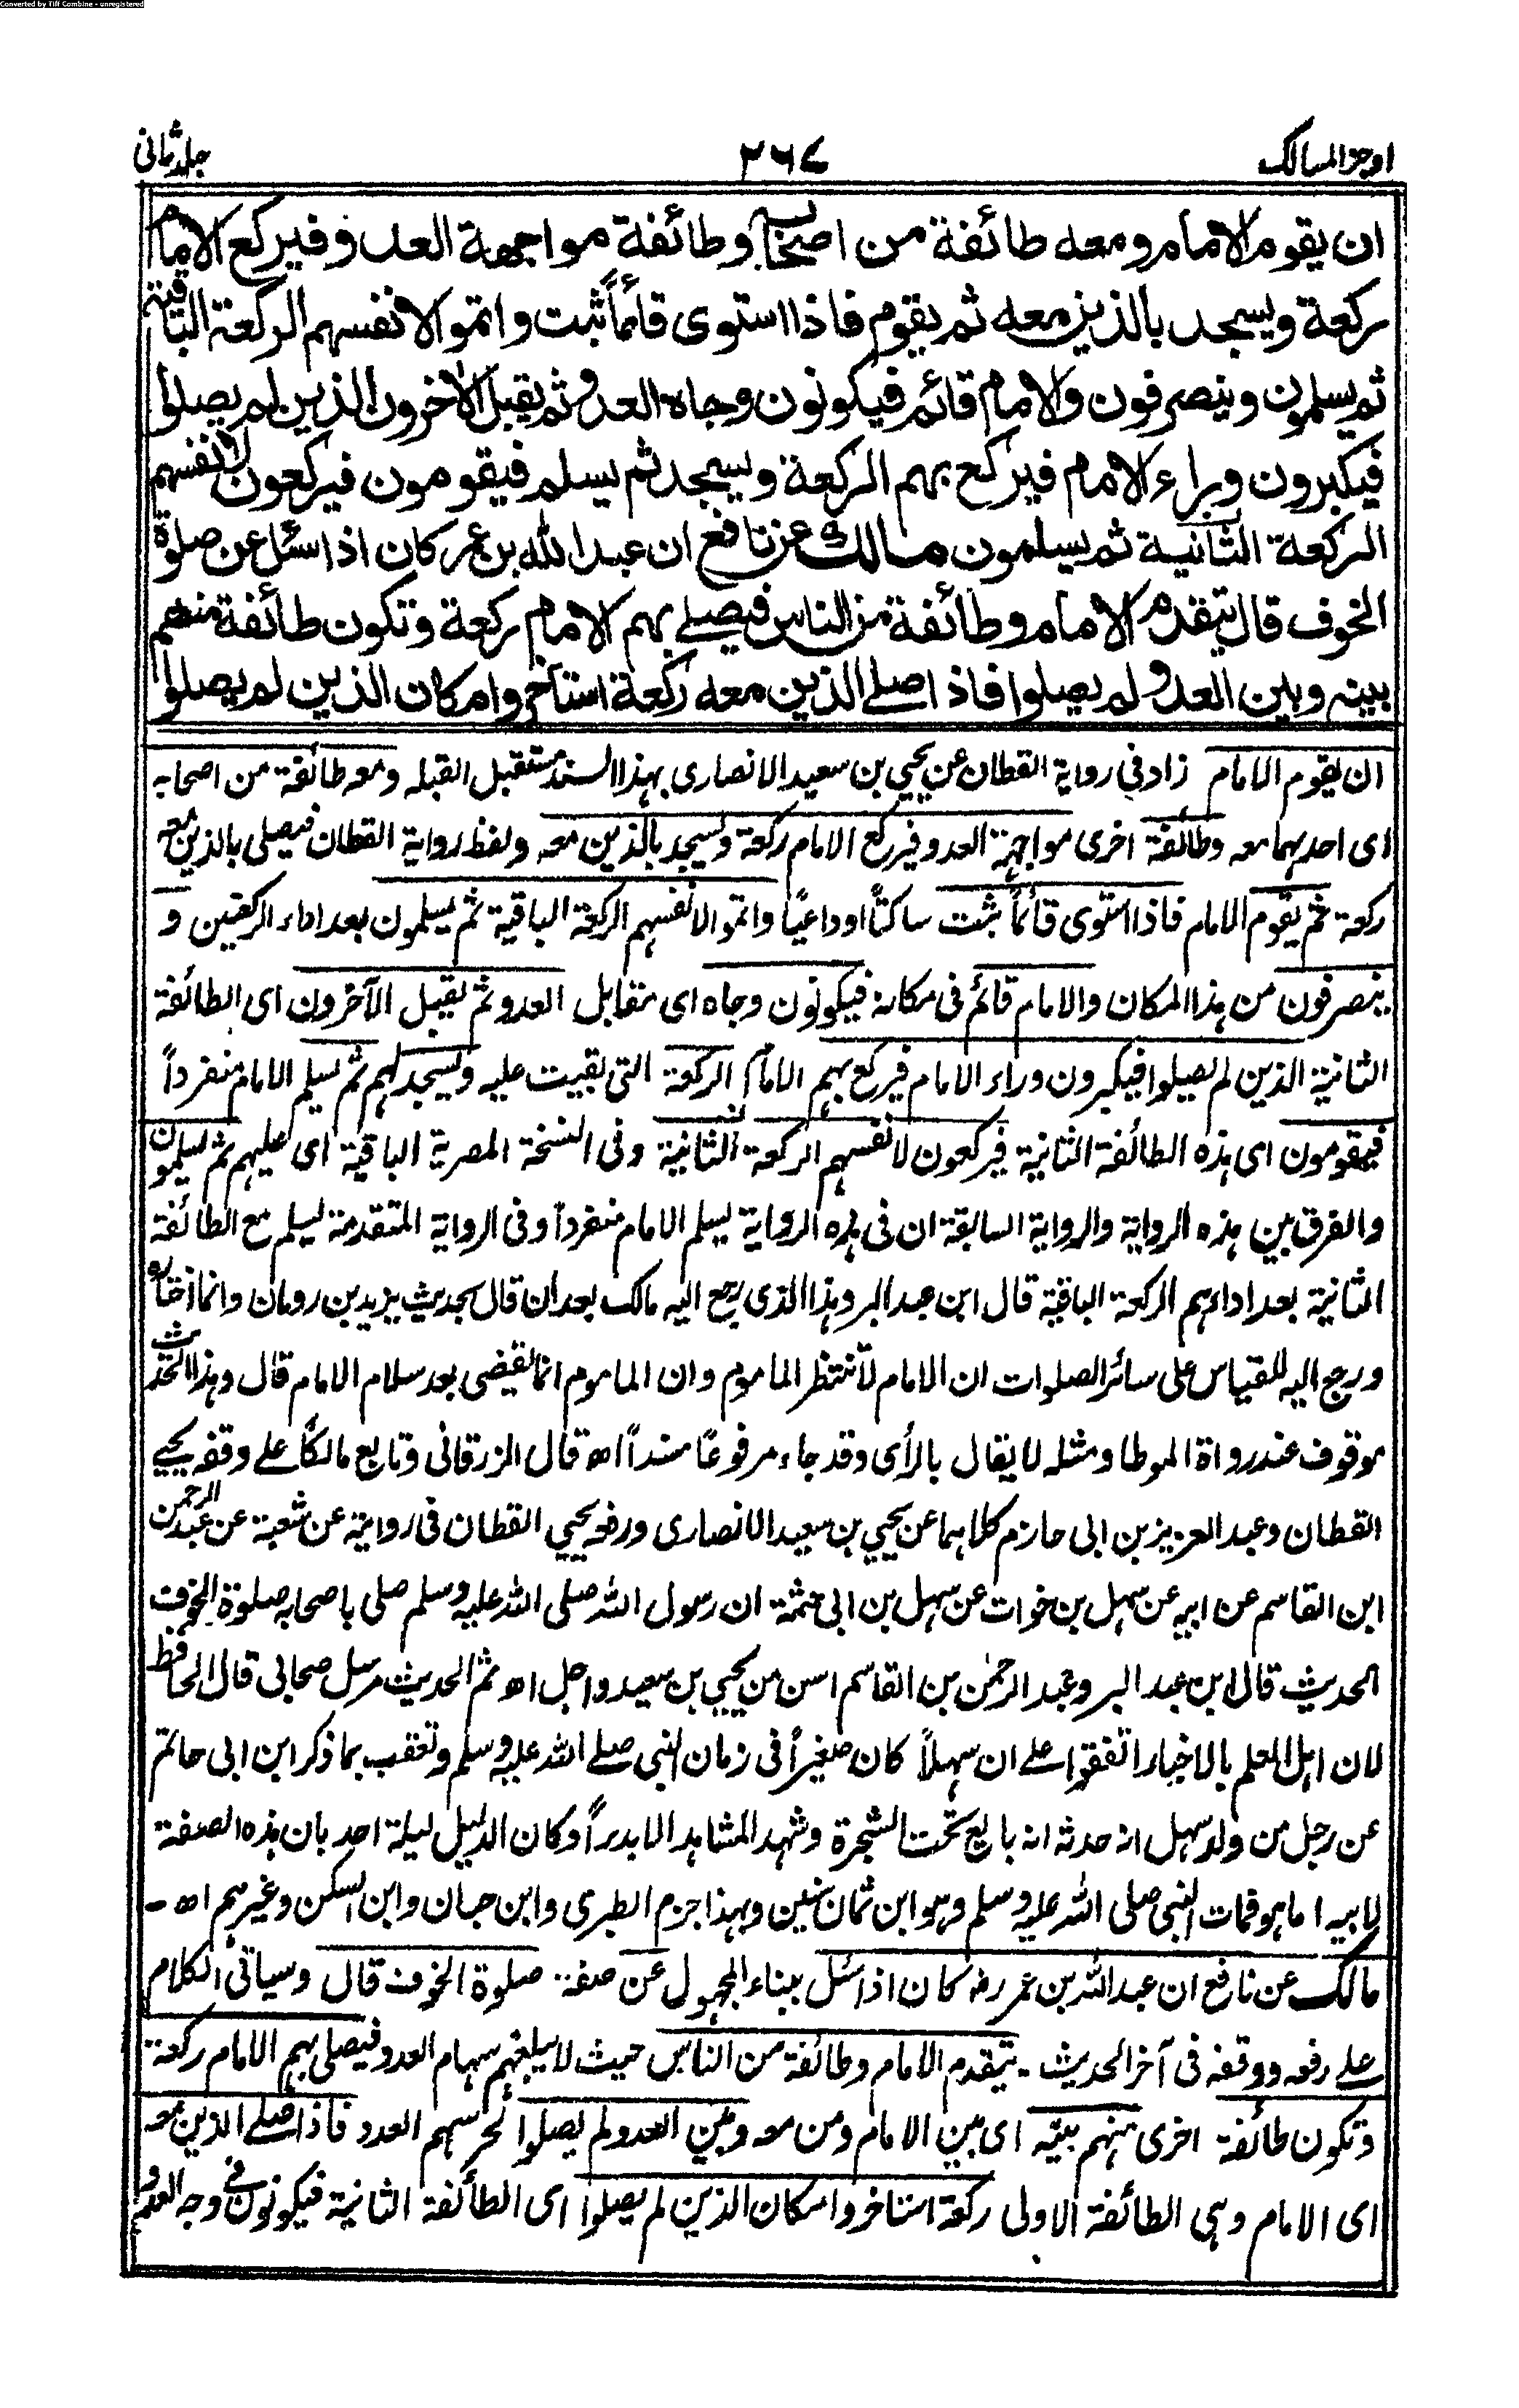 Converted by Tiff Combine - unregistered
اوجز المسالك
۲۶۷
جلد ثانی
ان يقوم الامام ومعه طائفة من اصحابه وطائفة مواجهة العدو فيركع الامام
ركعة ويسجد بالذين معه ثم يقوم فاذا استوى قائماً ثبت واتموا لانفسهم الركعة الباقية
ثم يسلمون وينصرفون والامام قائم فيكونون وجاه العدو ثم يقبل الآخرون الذين لم يصلوا
فيكبرون وراء الامام فيركع بهم الركعة ويسجد ثم يسلم فيقومون فيركعون لانفسهم
الركعة الثانية ثم يسلمون مالك عن نافع ان عبد الله بن عمر كان اذا سئل عن صلوة
الخوف قال يتقدم الامام وطائفة من الناس فيصلے بهم الامام ركعة وتكون طائفة منهم
بينه وبين العدو لم يصلوا فاذا صلے الذين معه ركعة استأخروا مكان الذين لم يصلوا
ان يقوم الامام زاد فی رواية القطان عن يحيی بن سعيد الانصاری بهذا السند مستقبل القبلة ومعه طائفة من اصحابه
ای احدیهما معه وطائفة اخری مواجهة العدو فيركع الامام ركعة ويسجد بالذين معه ولفظ رواية القطان فيصلی بالذين معه
ركعة ثم يقوم الامام فاذا استوی قائماً ثبت ساكتاً او داعياً واتموا لانفسهم الركعة الباقية ثم يسلمون بعد اداء الركعتين و
ينصرفون من هذا المكان والامام قائم فی مكانه فيكونون وجاه ای مقابل العدو ثم يقبل الآخرون ای الطائفة
الثانية الذين لم يصلوا فيكبرون وراء الامام فيركع بهم الامام الركعة التی بقيت عليه ويسجد لهم ثم يسلم الامام منفرداً
فيقومون ای هذه الطائفة الثانية فيركعون لانفسهم الركعة الثانية وفی النسخة المصرية الباقية ای عليهم ثم يسلمون
والفرق بين هذه الرواية والرواية السابقة ان فی هذه الرواية يسلم الامام منفرداً وفی الرواية المتقدمة يسلم مع الطائفة
الثانية بعد اداءهم الركعة الباقية قال ابن عبد البر وهذا الذی رجع اليه مالك بعد ان قال بحديث يزيد بن رومان وانما اختاره
ورجع اليه للقياس علی سائر الصلوات ان الامام لا ينتظر الماموم وان الماموم انما يقضی بعد سلام الامام قال وهذا الحديث
موقوف عند رواة الموطا ومثله لا يقال بالرأی وقد جاء مرفوعاً مسنداً اھ قال الزرقانی وتابع مالكاً علے وقفه يحيے
القطان وعبد العزيز بن ابی حازم كلاهما عن يحيی بن سعيد الانصاری ورفعه يحيی القطان فی روايته عن شعبة عن عبد الرحمن
ابن القاسم عن ابيه عن سهل بن خوات عن سهل بن ابی حثمة ان رسول الله صلی الله عليه وسلم صلی باصحابه صلوة الخوف
الحديث قال ابن عبد البر وعبد الرحمٰن بن القاسم اسن من يحيی بن سعيد واجل اھ ثم الحديث مرسل صحابی قال الحافظ
لان اهل العلم بالاخبار اتفقوا علے ان سهلاً كان صغيراً فی زمان النبی صلے الله عليه وسلم وتعقب بما ذكر ابن ابی حاتم
عن رجل من ولد سهل انه حدثه انه بايع تحت الشجرة وشهد المشاهد الا بدراً وكان الدليل ليلة احد بان هذه الصفة
لابيه اما هو فمات النبی صلی الله عليه وسلم وهو ابن ثمان سنين وبهذا جزم الطبری وابن حبان وابن السكن وغيرهم اھ -
مالك عن نافع ان عبد الله بن عمر رض كان اذا سئل ببناء المجهول عن صفة صلوة الخوف قال وسياتی الكلام
علے رفعه ووقفه فی آخر الحديث - يتقدم الامام وطائفة من الناس حيث لا يبلغهم سهام العدو فيصلی بهم الامام ركعة
وتكون طائفة اخری منهم بينه ای بين الامام ومن معه وبين العدو لم يصلوا لحرسهم العدو فاذا صلے الذين معه
ای الامام وهی الطائفة الاولی ركعة استاخروا مكان الذين لم يصلوا ای الطائفة الثانية فيكونون فی وجه العدو